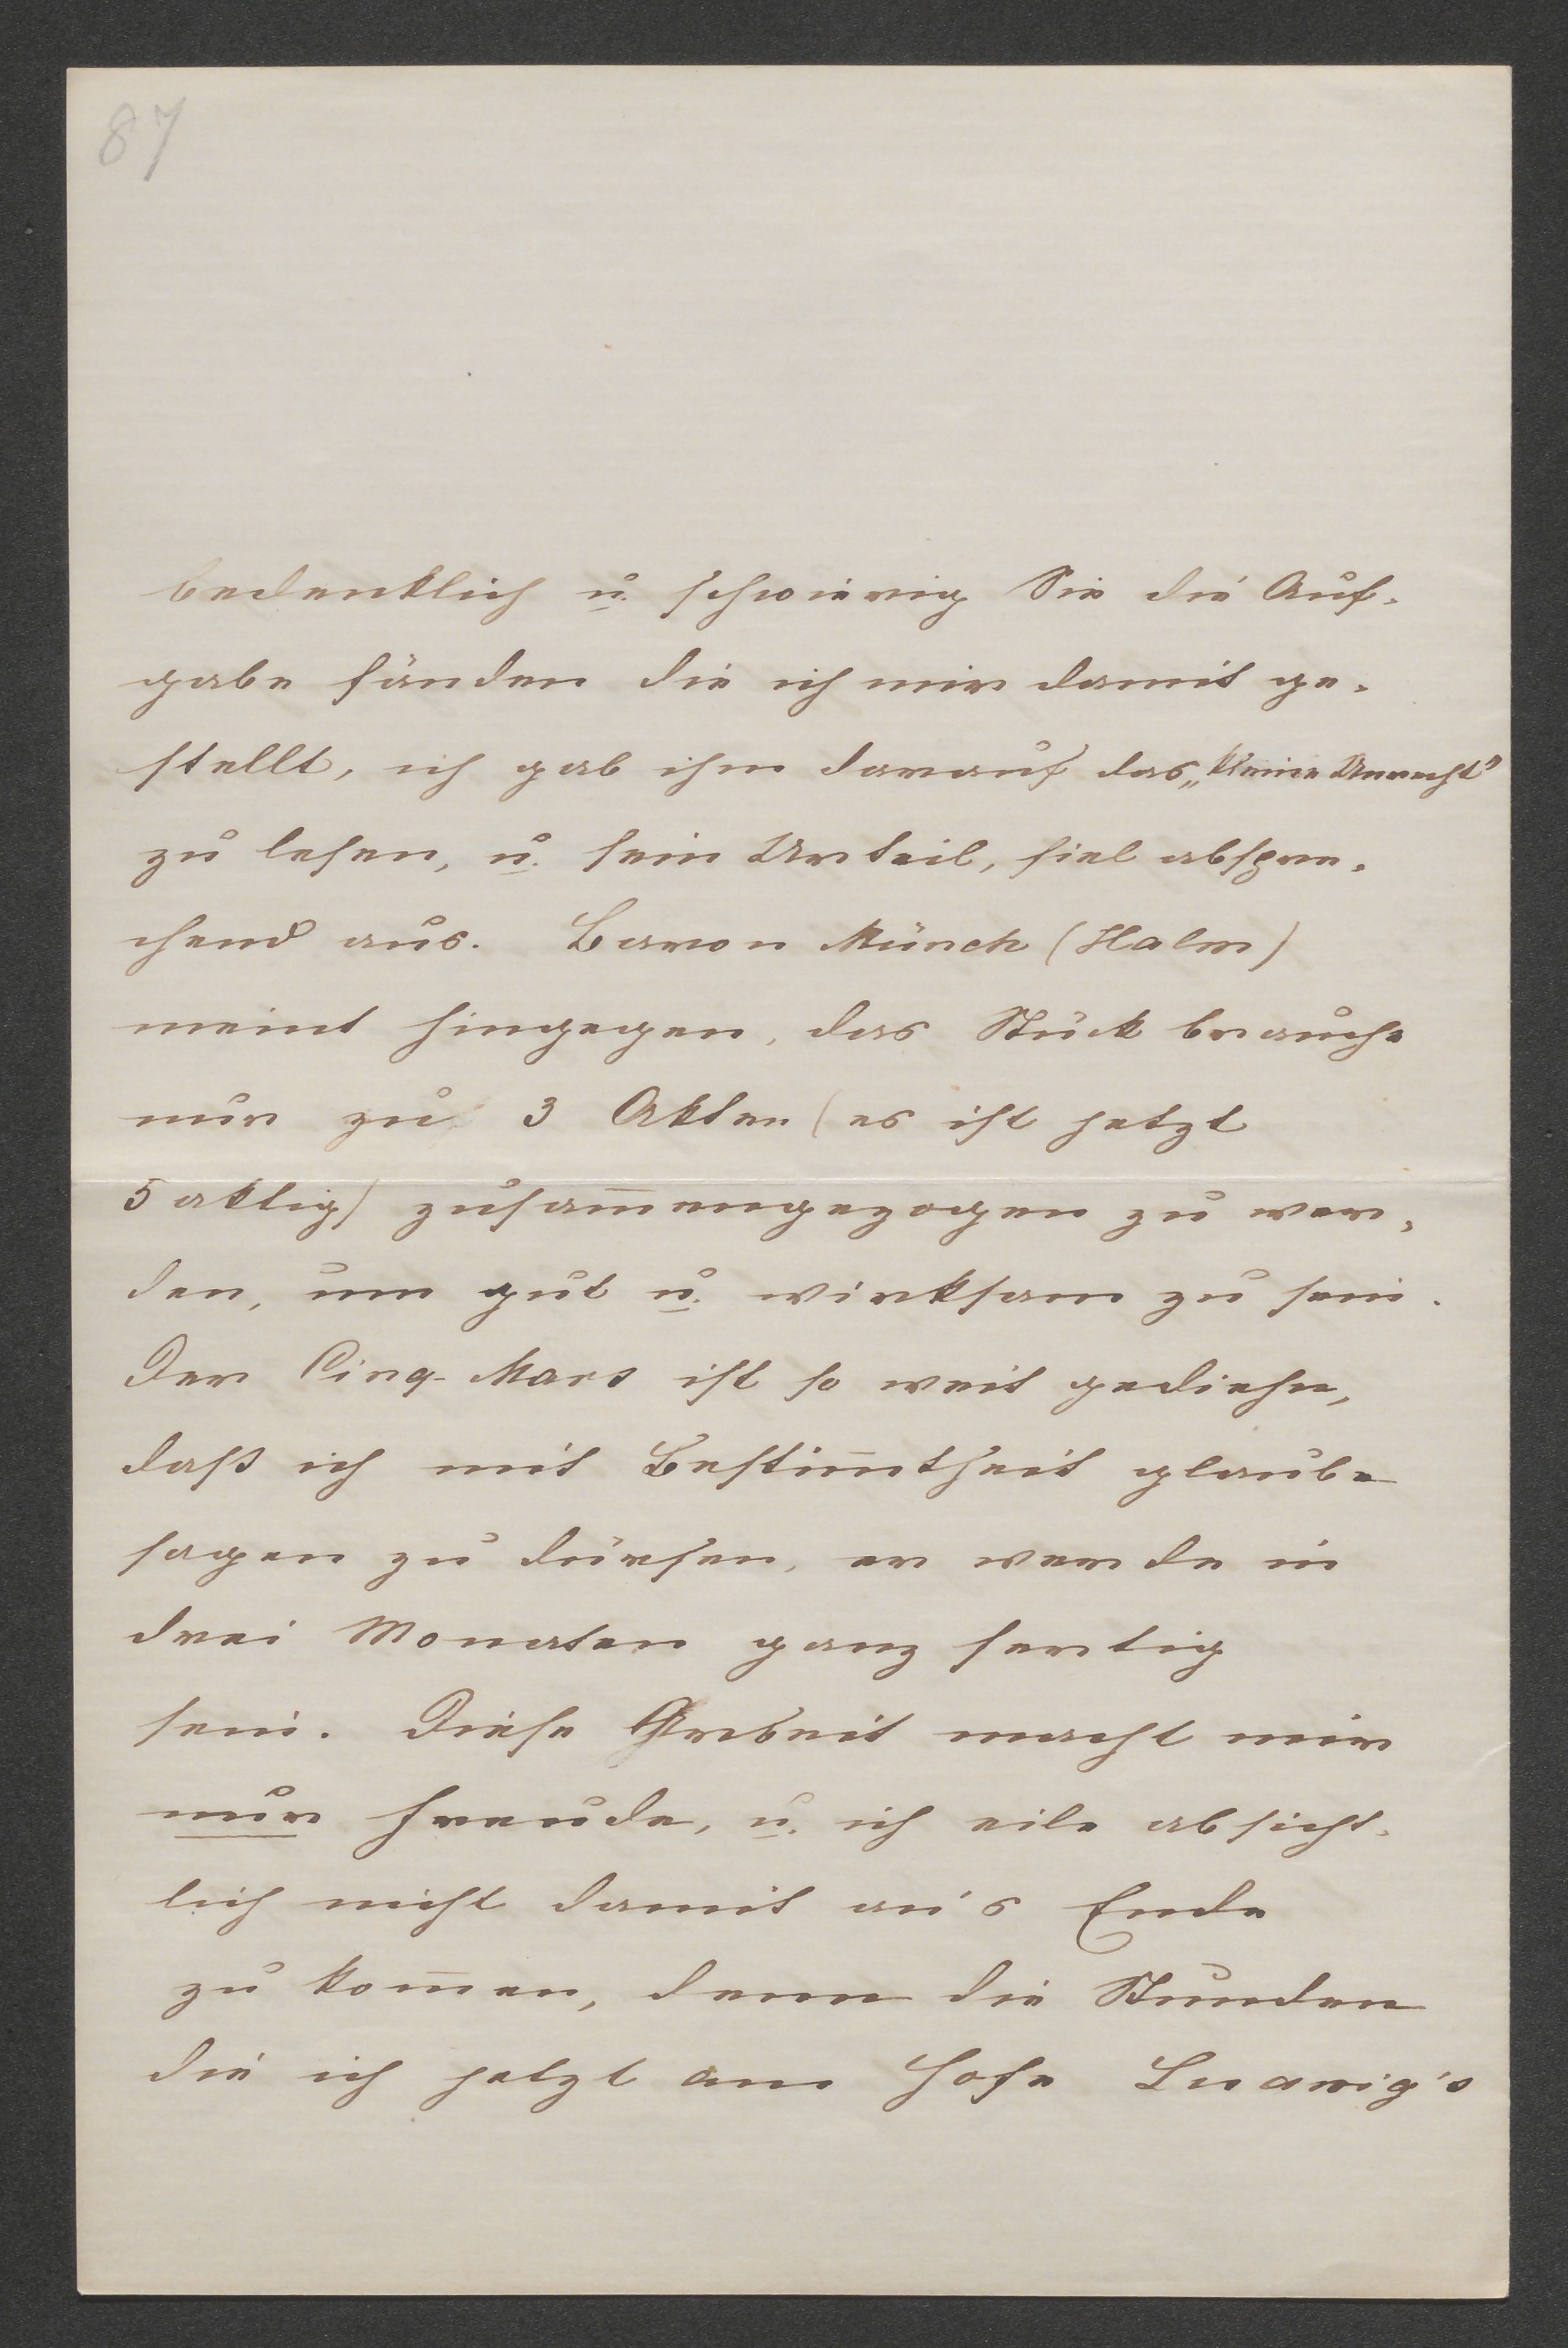 87
bedenklich u. schwierig Sie die Auf-
gabe fänden die ich mir damit ge-
stellt, ich gab ihm darauf das „kleine Unrecht"
zu lesen, u. sein Urteil, fiel abspre-
chend aus. Baron Münch (Halm)
meint hingegen, das Stück brauche
nur zu 3 Akten (es ist jetzt
5 aktig) zusam̅engezogen zu wer-
den, um gut u. wirksam zu sein.
Der Cinq-Mars ist so weit gediehn,
daß ich mit Bestim̅theit glaube
sagen zu dürfen, er werde in
drei Monaten ganz fertig
sein. Diese Arbeit macht mir
nur Freude, u. ich eile absicht-
lich nicht damit an's Ende
zu kom̅en, denn die Stunden
die ich jetzt am Hofe Ludwig's